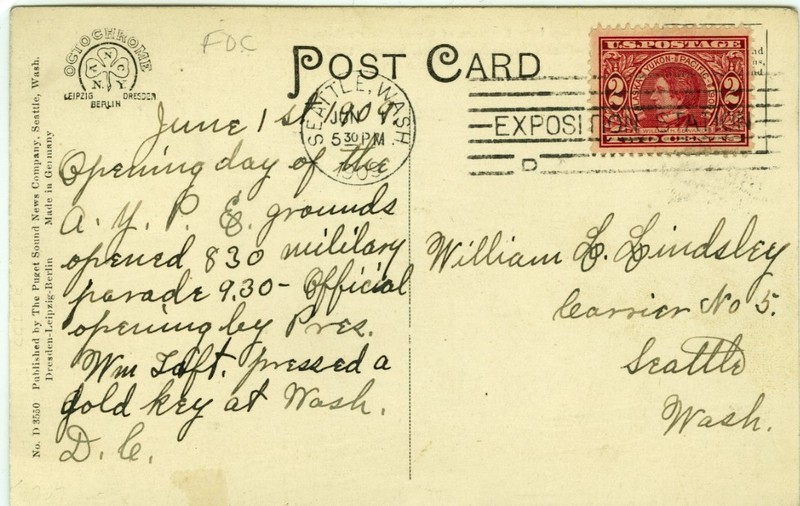 OCTOCHROME
A N C
N. Y.
LEIPZIG DRESDEN
BERLIN
FDC
POST CARD
SEATTLE, WASH.
JUN 1
5 30 PM
1909
EXPOSITION STATION
D
U.S. POSTAGE
ALASKA YUKON PACIFIC
2 2
TWO CENTS
June 1st 1909.
Opening day of the
A. Y. P. E. grounds
opened 830 military
parade 9.30 - Official
opening by Pres.
Wm Taft. pressed a
gold key at Wash.
D. C.
William L. Lindsley
Carrier No 5.
Seattle
Wash.
No. D 3550 Published by The Puget Sound News Company, Seattle, Wash.
Dresden-Leipzig-Berlin Made in Germany